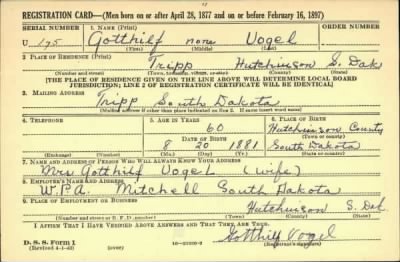 REGISTRATION CARD—(Men born on or after April 28, 1877 and on or before February 16, 1897)
SERIAL NUMBER 1. NAME (Print) ORDER NUMBER
U 195 Gotthilf none Vogel
(First) (Middle) (Last)
2. PLACE OF RESIDENCE (Print)
Tripp Hutchinson S. Dak
(Number and street) (Town, township, village, or city) (County) (State)
[THE PLACE OF RESIDENCE GIVEN ON THE LINE ABOVE WILL DETERMINE LOCAL BOARD
JURISDICTION; LINE 2 OF REGISTRATION CERTIFICATE WILL BE IDENTICAL]
3. MAILING ADDRESS
Tripp South Dakota
[Mailing address if other than place indicated on line 2. If same insert word same]
4. TELEPHONE 5. AGE IN YEARS 6. PLACE OF BIRTH
60 Hutchinson County
DATE OF BIRTH (Town or county)
8 20 1881 South Dakota
(Exchange) (Number) (Mo.) (Day) (Yr.) (State or country)
7. NAME AND ADDRESS OF PERSON WHO WILL ALWAYS KNOW YOUR ADDRESS
Mrs Gotthilf Vogel (wife)
8. EMPLOYER'S NAME AND ADDRESS
W.P.A. Mitchell South Dakota
9. PLACE OF EMPLOYMENT OR BUSINESS
Hutchinson S. Dak
(Number and street or R. F. D. number) (Town) (County) (State)
I AFFIRM THAT I HAVE VERIFIED ABOVE ANSWERS AND THAT THEY ARE TRUE.
Gotthilf Vogel
D. S. S. Form 1
(Revised 4-1-42) (over) (Registrant's signature)